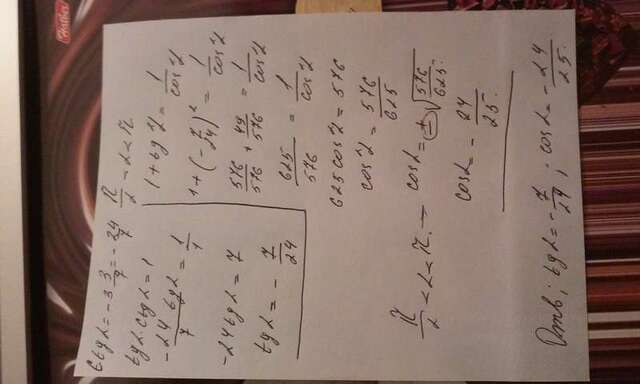 Hatber
ctg α = -3 3/7 = -24/7
π/2 < α < π
tg α · ctg α = 1
-24 tg α/7 = 1/1
-24 tg α = 7
tg α = -7/24
1 + tg²α = 1/cos²α
1 + (-7/24)² = 1/cos²α
576/576 + 49/576 = 1/cos²α
625/576 = 1/cos²α
625 cos²α = 576
cos²α = 576/625
π/2 < α < π. — cos α = ± √576/625
cos α = -24/25.
Отв; tg α = -7/24; cos α = -24/25.